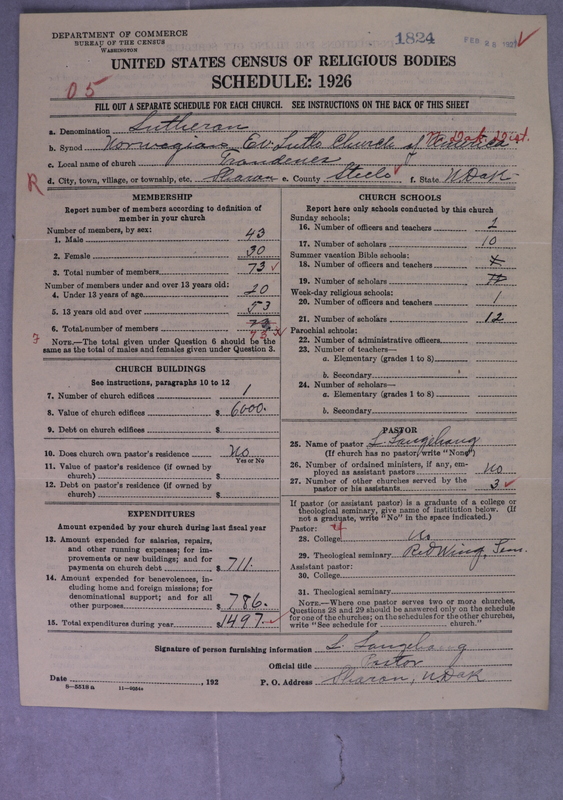 DEPARTMENT OF COMMERCE
BUREAU OF THE CENSUS
WASHINGTON
1824
FEB 28 192
UNITED STATES CENSUS OF RELIGIOUS BODIES
SCHEDULE: 1926
05
FILL OUT A SEPARATE SCHEDULE FOR EACH CHURCH. SEE INSTRUCTIONS ON THE BACK OF THIS SHEET
a. Denomination Lutheran
b. Synod Norwegian Ev. Luth. Church of America N. Dak. Dist.
c. Local name of church Trondenes
d. City, town, village, or township, etc. Sharon e. County Steele f. State N. Dak.
R
MEMBERSHIP
Report number of members according to definition of
member in your church
Number of members, by sex:
1. Male 43
2. Female 30
3. Total number of members 73
Number of members under and over 13 years old:
4. Under 13 years of age 20
5. 13 years old and over 53
6. Total number of members 73
NOTE.—The total given under Question 6 should be the
same as the total of males and females given under Question 3.
CHURCH BUILDINGS
See instructions, paragraphs 10 to 12
7. Number of church edifices 1
8. Value of church edifices $ 6000.
9. Debt on church edifices $
10. Does church own pastor's residence? No
Yes or No
11. Value of pastor's residence (if owned by
church) $
12. Debt on pastor's residence (if owned by
church) $
EXPENDITURES
Amount expended by your church during last fiscal year
13. Amount expended for salaries, repairs,
and other running expenses; for im-
provements or new buildings; and for
payments on church debt $ 711.
14. Amount expended for benevolences, in-
cluding home and foreign missions; for
denominational support; and for all
other purposes $ 786.
15. Total expenditures during year $ 1497.
CHURCH SCHOOLS
Report here only schools conducted by this church
Sunday schools:
16. Number of officers and teachers 1
17. Number of scholars 10
Summer vacation Bible schools:
18. Number of officers and teachers
19. Number of scholars
Week-day religious schools:
20. Number of officers and teachers 1
21. Number of scholars 12
Parochial schools:
22. Number of administrative officers
23. Number of teachers—
a. Elementary (grades 1 to 8)
b. Secondary
24. Number of scholars—
a. Elementary (grades 1 to 8)
b. Secondary
PASTOR
25. Name of pastor L. Langehaug
(If church has no pastor, write "None")
26. Number of ordained ministers, if any, em-
ployed as assistant pastors No
27. Number of other churches served by the
pastor or his assistants 3
If pastor (or assistant pastor) is a graduate of a college or
theological seminary, give name of institution below. (If
not a graduate, write "No" in the space indicated.)
Pastor:
28. College No
29. Theological seminary Red Wing, Sem.
Assistant pastor:
30. College
31. Theological seminary
NOTE.—Where one pastor serves two or more churches,
Questions 28 and 29 should be answered only on the schedule
for one of the churches; on the schedules for the other churches,
write "See schedule for church."
Signature of person furnishing information L. Langehaug
Official title Pastor
Date , 192 P. O. Address Sharon, N. Dak
8—5518a 11—9084